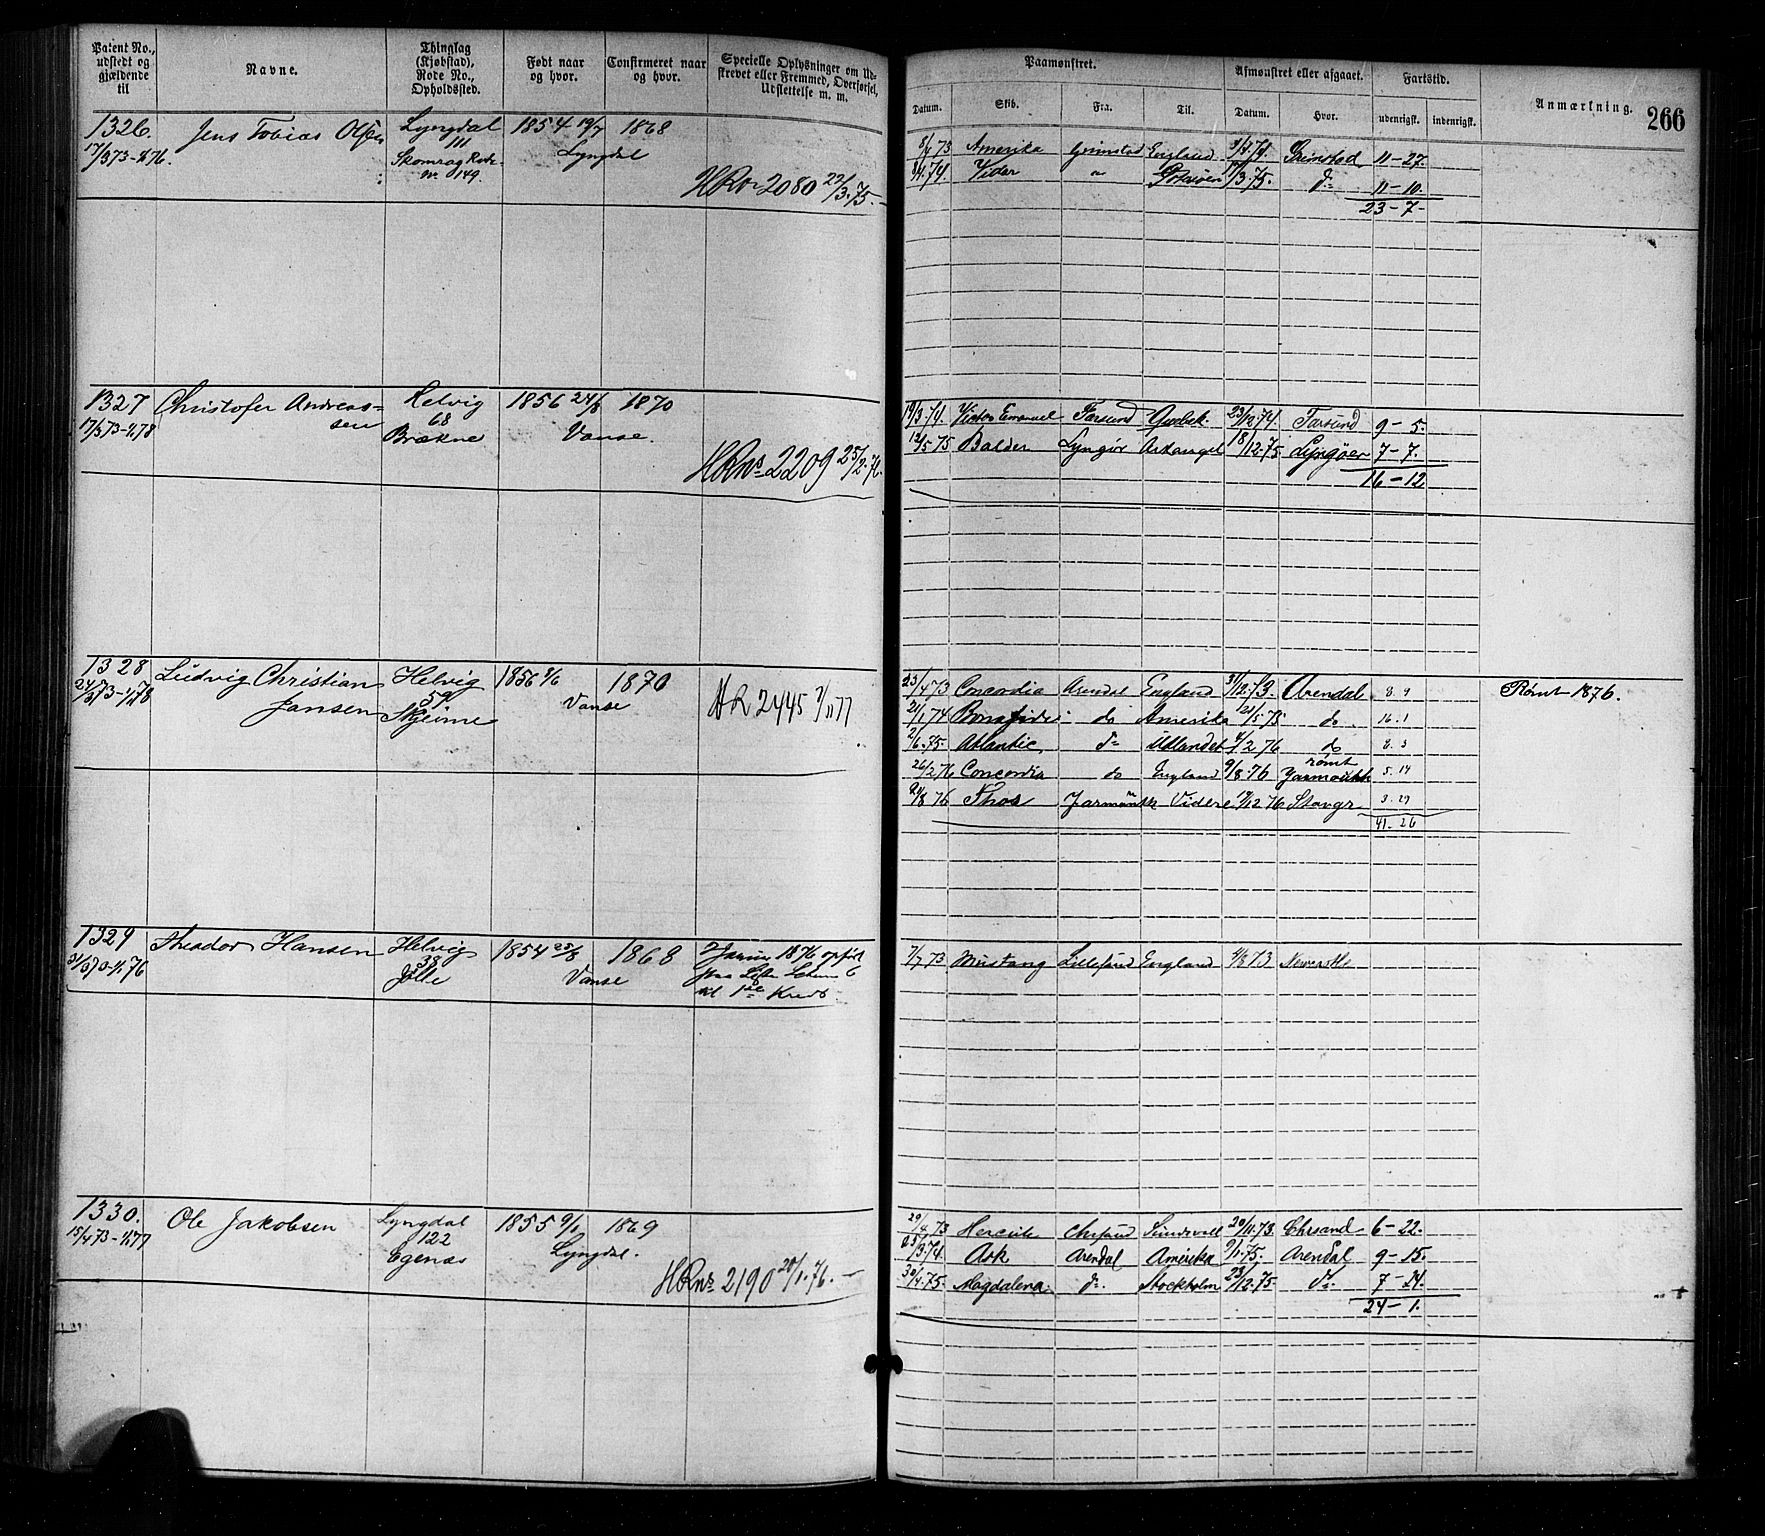 Patent No., udstedt og gjældende til
Navne.
Thinglag (Kjøbstad), Rode No., Opholdssted.
Født naar og hvor.
Confirmeret naar og hvor.
Specielle Oplysninger om Udskrevet eller Fremmed, Overførsel, Udslettelse m. m.
Paamønstret.
Afmønstret eller afgaaet.
Fartstid.
Anmærkning.
266
Datum.
Skib.
Fra.
Til.
Datum.
Hvor.
udenrigsk.
indenrigsk.
1326. Jens Tobias Olsen Lyngdal 1854 19/7 1868
17/3 73 - 76. 111 Lyngdal
Skomrag Rode
nr. 149.
HR 2080 /3.75.
8/4 73 Amerika Grimstad England 74. Grimstad 11-27.
74. Vidar " 3/75. do 11-10.
23-7
1327 Christofer Andreas= Helvig 1856 24/8 1870
17/3 73 - 78 sen 68 Vanse.
Brækne
HR nr 2209 25/2.76.
19/3.74. Victor Emanuel Farsund 23/12 74. Farsund 9-5.
12/5 75 Balder Lyngør Arkangel 18/12.75. Lyngøer 7-7.
16-12
1328 Ludvig Christian Helvig 1856 1870
24/3 73 - 78 Jansen 59 Vanse
Skjeime
HR 2445 77
23/4 73 Concordia Arendal England 31/12.73. Arendal 8.9 Rømt 1876.
21/1 74 Bonafides do Amerika 21/5 75 do 16.1
2/6.75. Atlantic do Udlandet 4/2 76 do 8.3
26/2 76 Concordia do England 9/8.76 rømt Yarmouth 5.14
8 76 Thor Jarmouth Videre 12 76 Stavgr 3.29
41.26
1329 Theodor Hansen Helvig 1854 25/8 1868
31/3 70 - 76 38 Vanse
Jølle
Januar 1876 opført
paa Lister
til 1ste Kreds
7/7 73 Mustang Lillesand England 73 Newcastle
1330. Ole Jakobsen Lyngdal 1855 9/1 1869
15/4 73 - 77 122 Lyngdal.
Egenæs
HR nr 2190 20/1.76.
29/4 73 Hercules Chrsand Sundsvall 20/11.73. Chrsand 6-22.
3.74. Ark Arendal Amerika 9/1.75. Arendal 9-15.
30/4.75. Magdalena do Stockholm 23/12.75 do 7-24.
24-1.